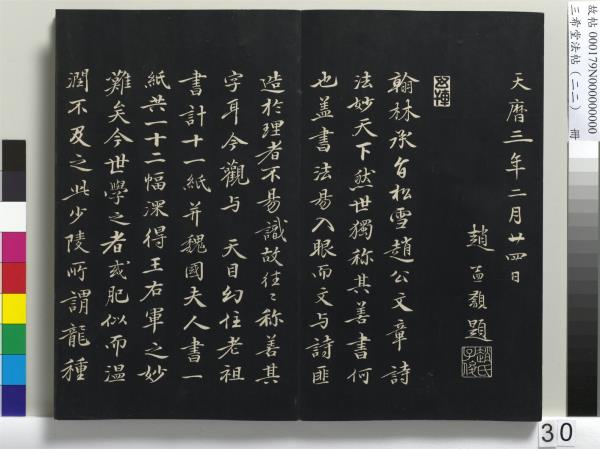 故帖 000179N000000000
三希堂法帖（二二） 冊
天曆三年二月廿四日
趙孟籲題
趙氏子俊
翰林承旨松雪趙公文章詩
法妙天下然世獨称其善書何
也盖書法易入眼而文与詩匪
造於理者不易識故往〻称善其
字耳今觀与 天目幻住老祖
書計十一紙并魏國夫人書一
紙共一十二幅深得王右軍之妙
難矣今世學之者或肥似而温
潤不及之此少陵所謂龍種
30